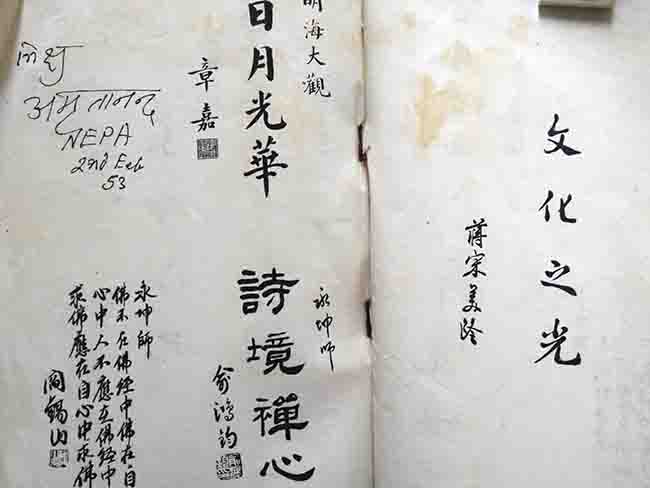 文化之光
蔣宋美齡
明海大觀
日月光華
章嘉
भिक्षु
अमृतानन्द
NEPA
2nd Feb
53
永坤師
詩境禪心
俞鴻鈞
永坤師
佛不在佛經中佛在自
心中人不應在佛經中
求佛應在自心中求佛
閻錫山